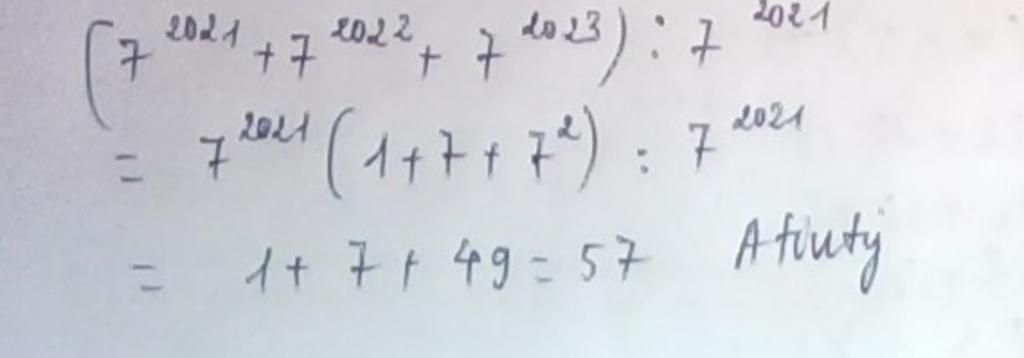 (7^2021 + 7^2022 + 7^2023) : 7^2021
= 7^2021 (1 + 7 + 7^2) : 7^2021
= 1 + 7 + 49 = 57